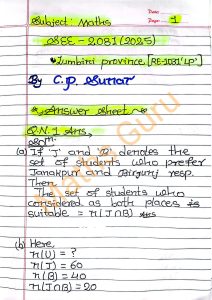 Subject: Maths
Date :
Page : 1
SEE - 2081 (2025)
Lumbini province [RE-1031'LP']
By C.P. Sunar
Answer sheet
Q.N. 1 Ans,
Soln:
(a) If J and B denotes the
set of students who prefer
Janakpur and Birgunj resp.
Then
The set of students who
considered as both places is
suitable = n(J∩B) Ans
(b) Here,
n(U) = ?
n(J) = 60
n(B) = 40
n(J∩B) = 20
Maths Guru